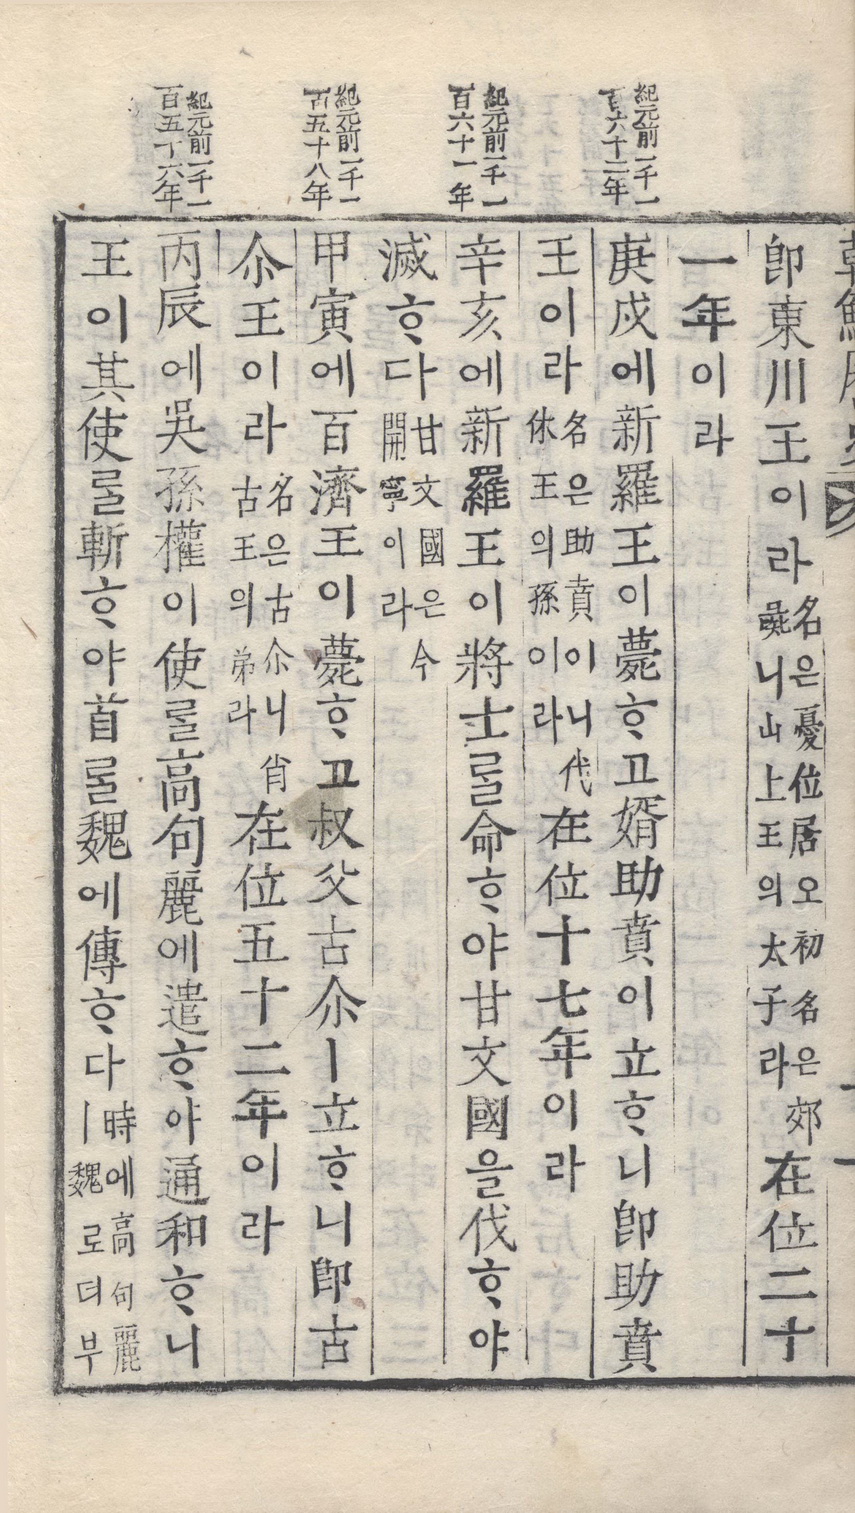 紀元前一千一
百六十二年
紀元前一千一
百六十一年
紀元前一千一
百五十八年
紀元前一千一
百五十六年
卽東川王이라名은憂位居오初名은郊彘니山上王의太子라在位二十
一年이라
庚戌에新羅王이薨ᄒᆞ고婿助賁이立ᄒᆞ니卽助賁
王이라名은助賁이니代休王의孫이라在位十七年이라
辛亥에新羅王이將士를命ᄒᆞ야甘文國을伐ᄒᆞ야
滅ᄒᆞ다甘文國은今開寧이라
甲寅에百濟王이薨ᄒᆞ고叔父古尒ㅣ立ᄒᆞ니卽古
尒王이라名은古尒니肖古王의弟라在位五十二年이라
丙辰에吳孫權이使를高句麗에遣ᄒᆞ야通和ᄒᆞ니
王이其使를斬ᄒᆞ야首를魏에傳ᄒᆞ다時에高句麗ㅣ魏로더부